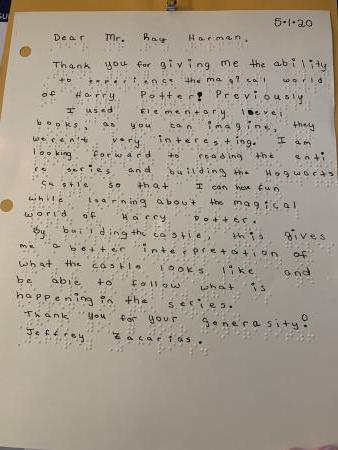 5•1•20
Dear Mr. Ray Harman.
Thank you for giving me the ability
to experience the magical world
of Harry Potter! Previously
I used Elementary level
books, as you can imagine, they
weren't very interesting. I am
looking forward to reading the enti
re series and building the Hogwarts
castle so that I can have fun
while learning about the magical
world of Harry Potter.
By building the castle, this gives
me a better interpretation of
what the castle looks like and
be able to follow what is
happening in the series.
Thank you for your generasity!
Jeffrey Zacarias.